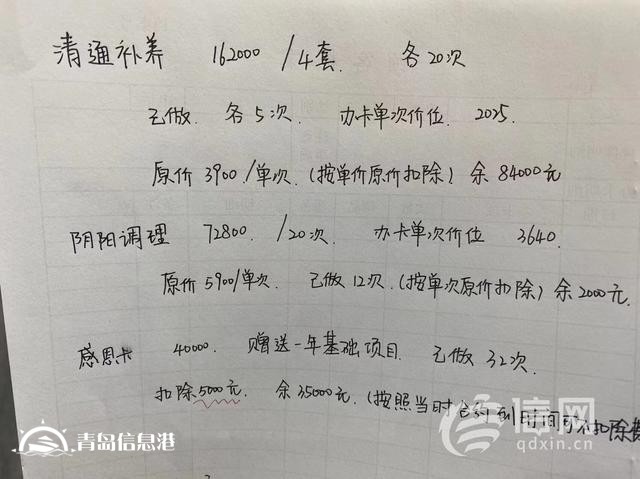 清通补养 162000 /4套. 各20次
已做. 各5次. 办卡单次价位. 2025.
原价 3900./单次. (按单价原价扣除) 余 84000元
阴阳调理 72800. /20次. 办卡单次价位. 3640.
原价 5900/单次. 已做12次. (按单次原价扣除) 余2000元.
感恩卡 40000. 赠送一年基础项目. 已做 32次.
扣除5000元. 余 35000元. (按照当时 时间 扣除
青岛信息港
信网
qdxin.cn